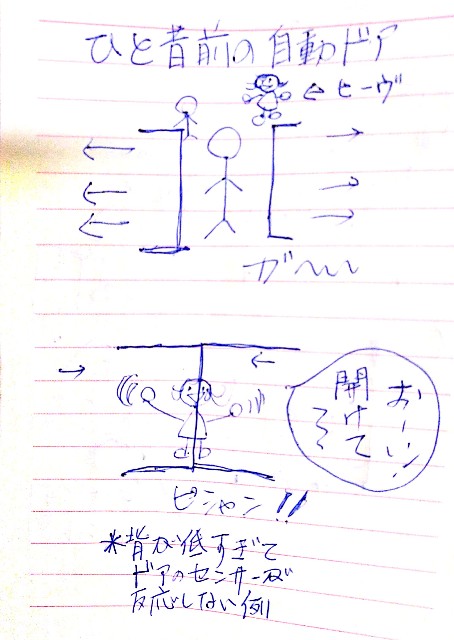 ひと昔前の自動ドア
←ヒーヴ
ガ〜〜
おーい!
開けて
ピシャン!!
※背が低すぎて
ドアのセンサーが
反応しない例